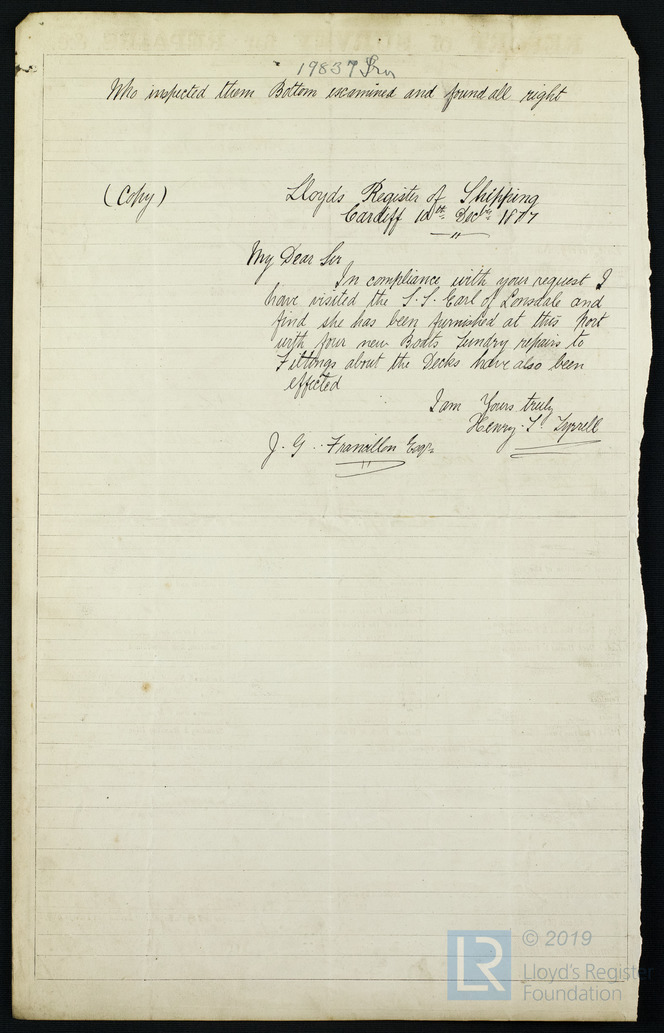 19837 Irn
Who inspected them Bottom examined and found all right
(Copy)
Lloyds Register of Shipping
Cardiff 12th Decr 1877
My Dear Sir
In compliance with your request I
have visited the S.S. Earl of Lonsdale and
find she has been furnished at this Port
with four new Boats Sundry repairs to
Fittings about the Decks have also been
effected
I am Yours truly
Henry. S. Tyrrell
J. G. Francillon Esqre
© 2019
LR
Lloyd's Register
Foundation